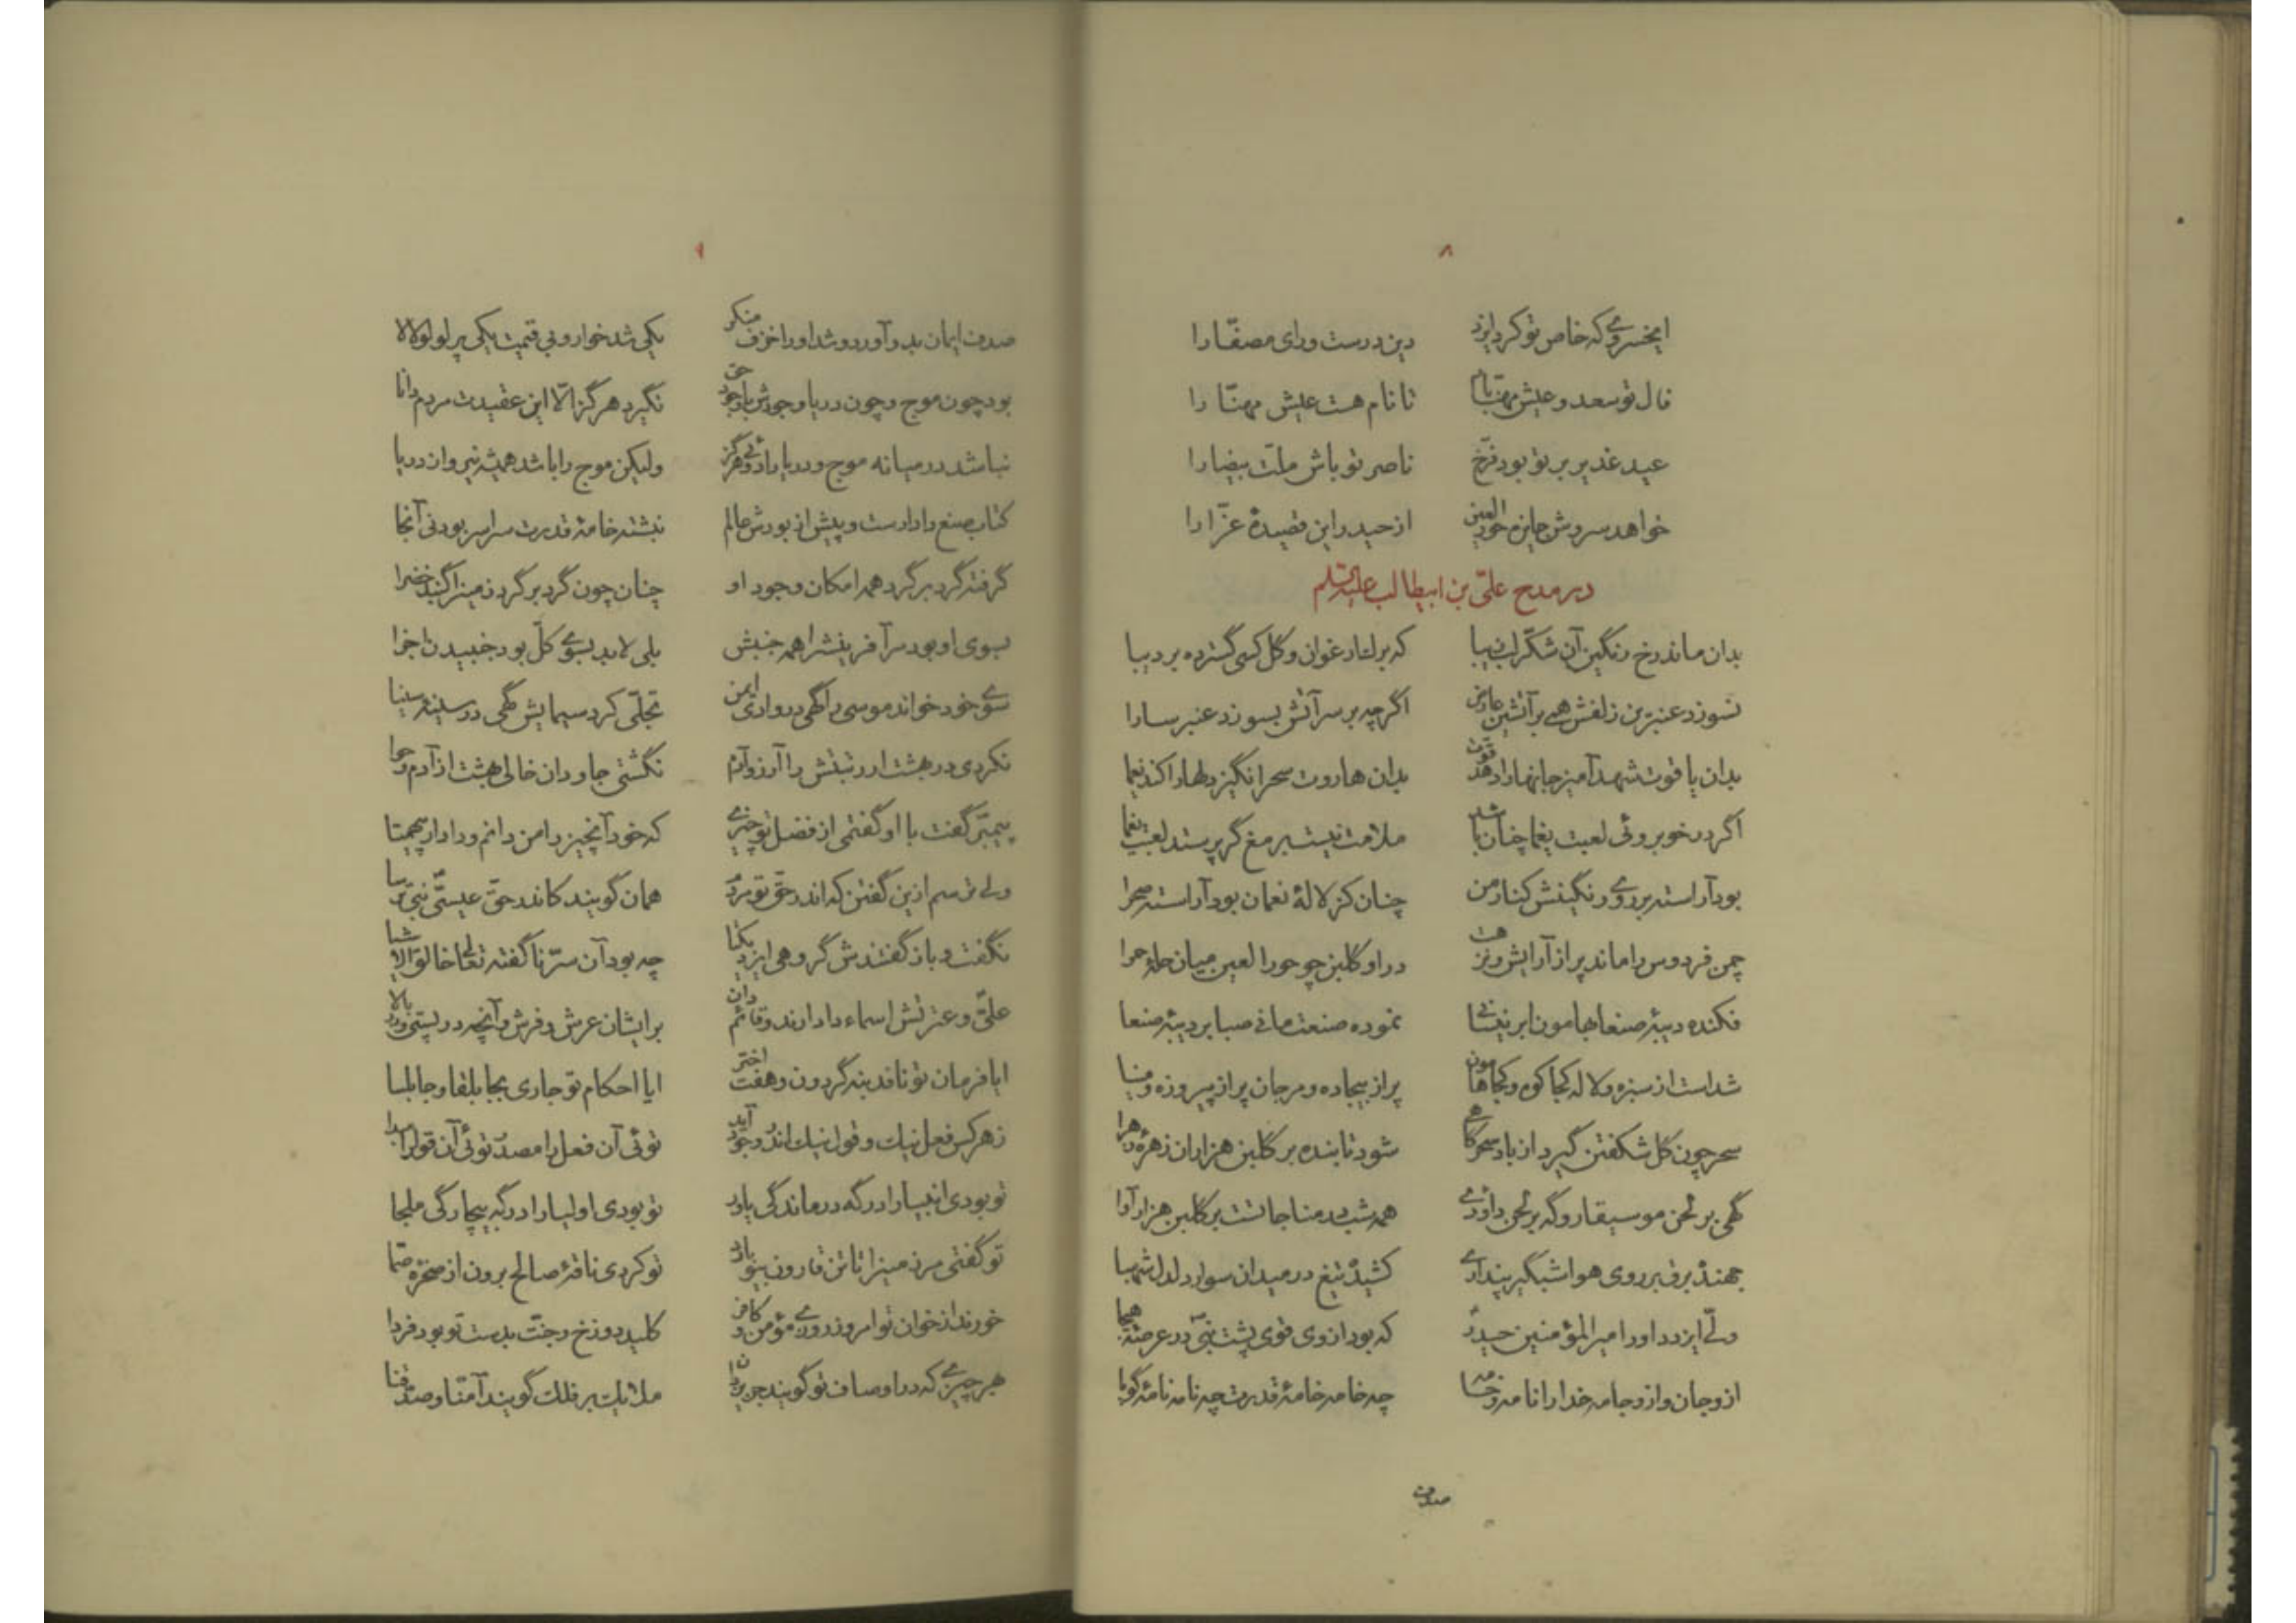 ۸
ایخسروی که خاص تو کرد ایزد دین درست و رای مصفّا را
فال تو سعد و عیش مهنّا تا نام هست عیش مهنّا را
عید غدیر بر تو بود فرّخ ناصر تو باش ملّت بیضا را
خواهد سروش جایزه حور العین از حیدر این قصیدهٔ غرّا را
در مدح علیّ بن ابیطالب علیه السّلم
بدان ماند رخ رنگین آن شکّر لب زیبا که بر گلنار غوان و گل کسی گسترده بر دیبا
نسوزد عنبرین زلفش همی بر آتشین عارض اگر چه بر سر آتش بسوزد عنبر سارا
بدان یاقوت شهد آمیز جانها را دهد قوّت بدان هاروت سحر انگیز دلها را کند یغما
اگر در خوبروئی لعبت یغما چنان باشد ملامت نیست بر مغ گر پرستد لعبت یغما
بود آراسته بر روی رنگینش کنار من چنان کز لالهٔ نعمان بود آراسته صحرا
چمن فردوس را ماند پر از آرایش و زینت در او گلبن چو حورا العین میان حلهٔ حمرا
فکنده دیبهٔ صنعا بهامون ابر نیسانی نموده صنعت مانی صبا بر دیبهٔ صنعا
شد است از سبزه و لاله کجا کوه و کجا هامون پر از بیجاده و مرجان پر از پیروزه و مینا
سحر چون گل شکفتن گیرد از باد سحرگاهی شود تابنده بر گلبن هزاران زهرهٔ زهرا
گهی بر لحن موسیقار و گه بر لحن داودی همه شب در مناجاتست بر گلبن هزار آوا
جهنده برق بر روی هوا شبگیر پنداری کشیده تیغ در میدان سوار دلدل شهبا
ولیّ ایزد داور امیر المؤمنین حیدر که بود از وی قوی پشت نبیّ در عرصهٔ هیجا
ازو جان و ازو جامه خدا را نامه و خامه چه خامه خامهٔ قدرت چه نامه نامهٔ گویا
صدف
۹
صدف ایمان بدو آورد و شد او را خزف منکر یکی شد خوار و بی قیمت یکی پر لولو لالا
بود چون موج و چون دریا وجودش با وجود حق نگیرد هرگز الّا این عقیدت مردم دانا
نباشد در میانه موج و دریا را دوئی هرگز ولیکن موج را باشد همیشه نیرو از دریا
کتاب صنع دادارست و پیش از بودش عالم نبشته خامهٔ قدرت سراسر بودنی آنجا
گرفته گرد بر گرد همه امکان وجود او چنان چون گرد بر گرد زمین را گنبد خضرا
بسوی او بود مر آفرینش را همه جنبش بلی لابد بسوی کلّ بود جنبیدن اجزا
سوی خود خواند موسی را گهی در وادی ایمن تجلّی کرد سیمایش گهی در سینهٔ سینا
نکردی در بهشت ار رتبتش را آرزو آدم نگشتی جاودان خالی بهشت از آدم و حوا
پیمبّر گفت با او گفتمی از فضل تو چیزی که خود آنچیز را من دانم و دادار بیهمتا
ولی ترسم ازین گفتن که اندر حقّ تو مردم همان گویند کاندر حقّ عیسیّ نبیّ ترسا
نگفت و باز گفتندش گروهی ایزد یکتا چه بود آن سرّ ناگفته تعالی خالق الاشیا
علیّ و عترتش اسماء دادارند و قائم دان بر ایشان عرش و فرش و آنچه در پستی و در بالا
ایا فرمان تو نافذ بنه گردون و هفت اختر ایا احکام تو جاری بجابلقا و جابلسا
ز هر کس فعل نیک و قول نیک اندر وجود آید توئی آن فعل را مصدر توئی آن قول را مبدا
تو بودی انبیا را در گه درماندگی یاور تو بودی اولیا را در گه بیچارگی ملجا
تو گفتی مر زمین را تا تن قارون بیوبارد تو کردی ناقهٔ صالح برون از صخرهٔ صمّا
خورند از خوان تو امروز روزی مؤمن و کافر کلید دوزخ و جنّت بدست تو بود فردا
هر چیزی که در اوصاف تو گویند جز یزدان ملایک بر فلک گویند آمنّا و صدّقنا